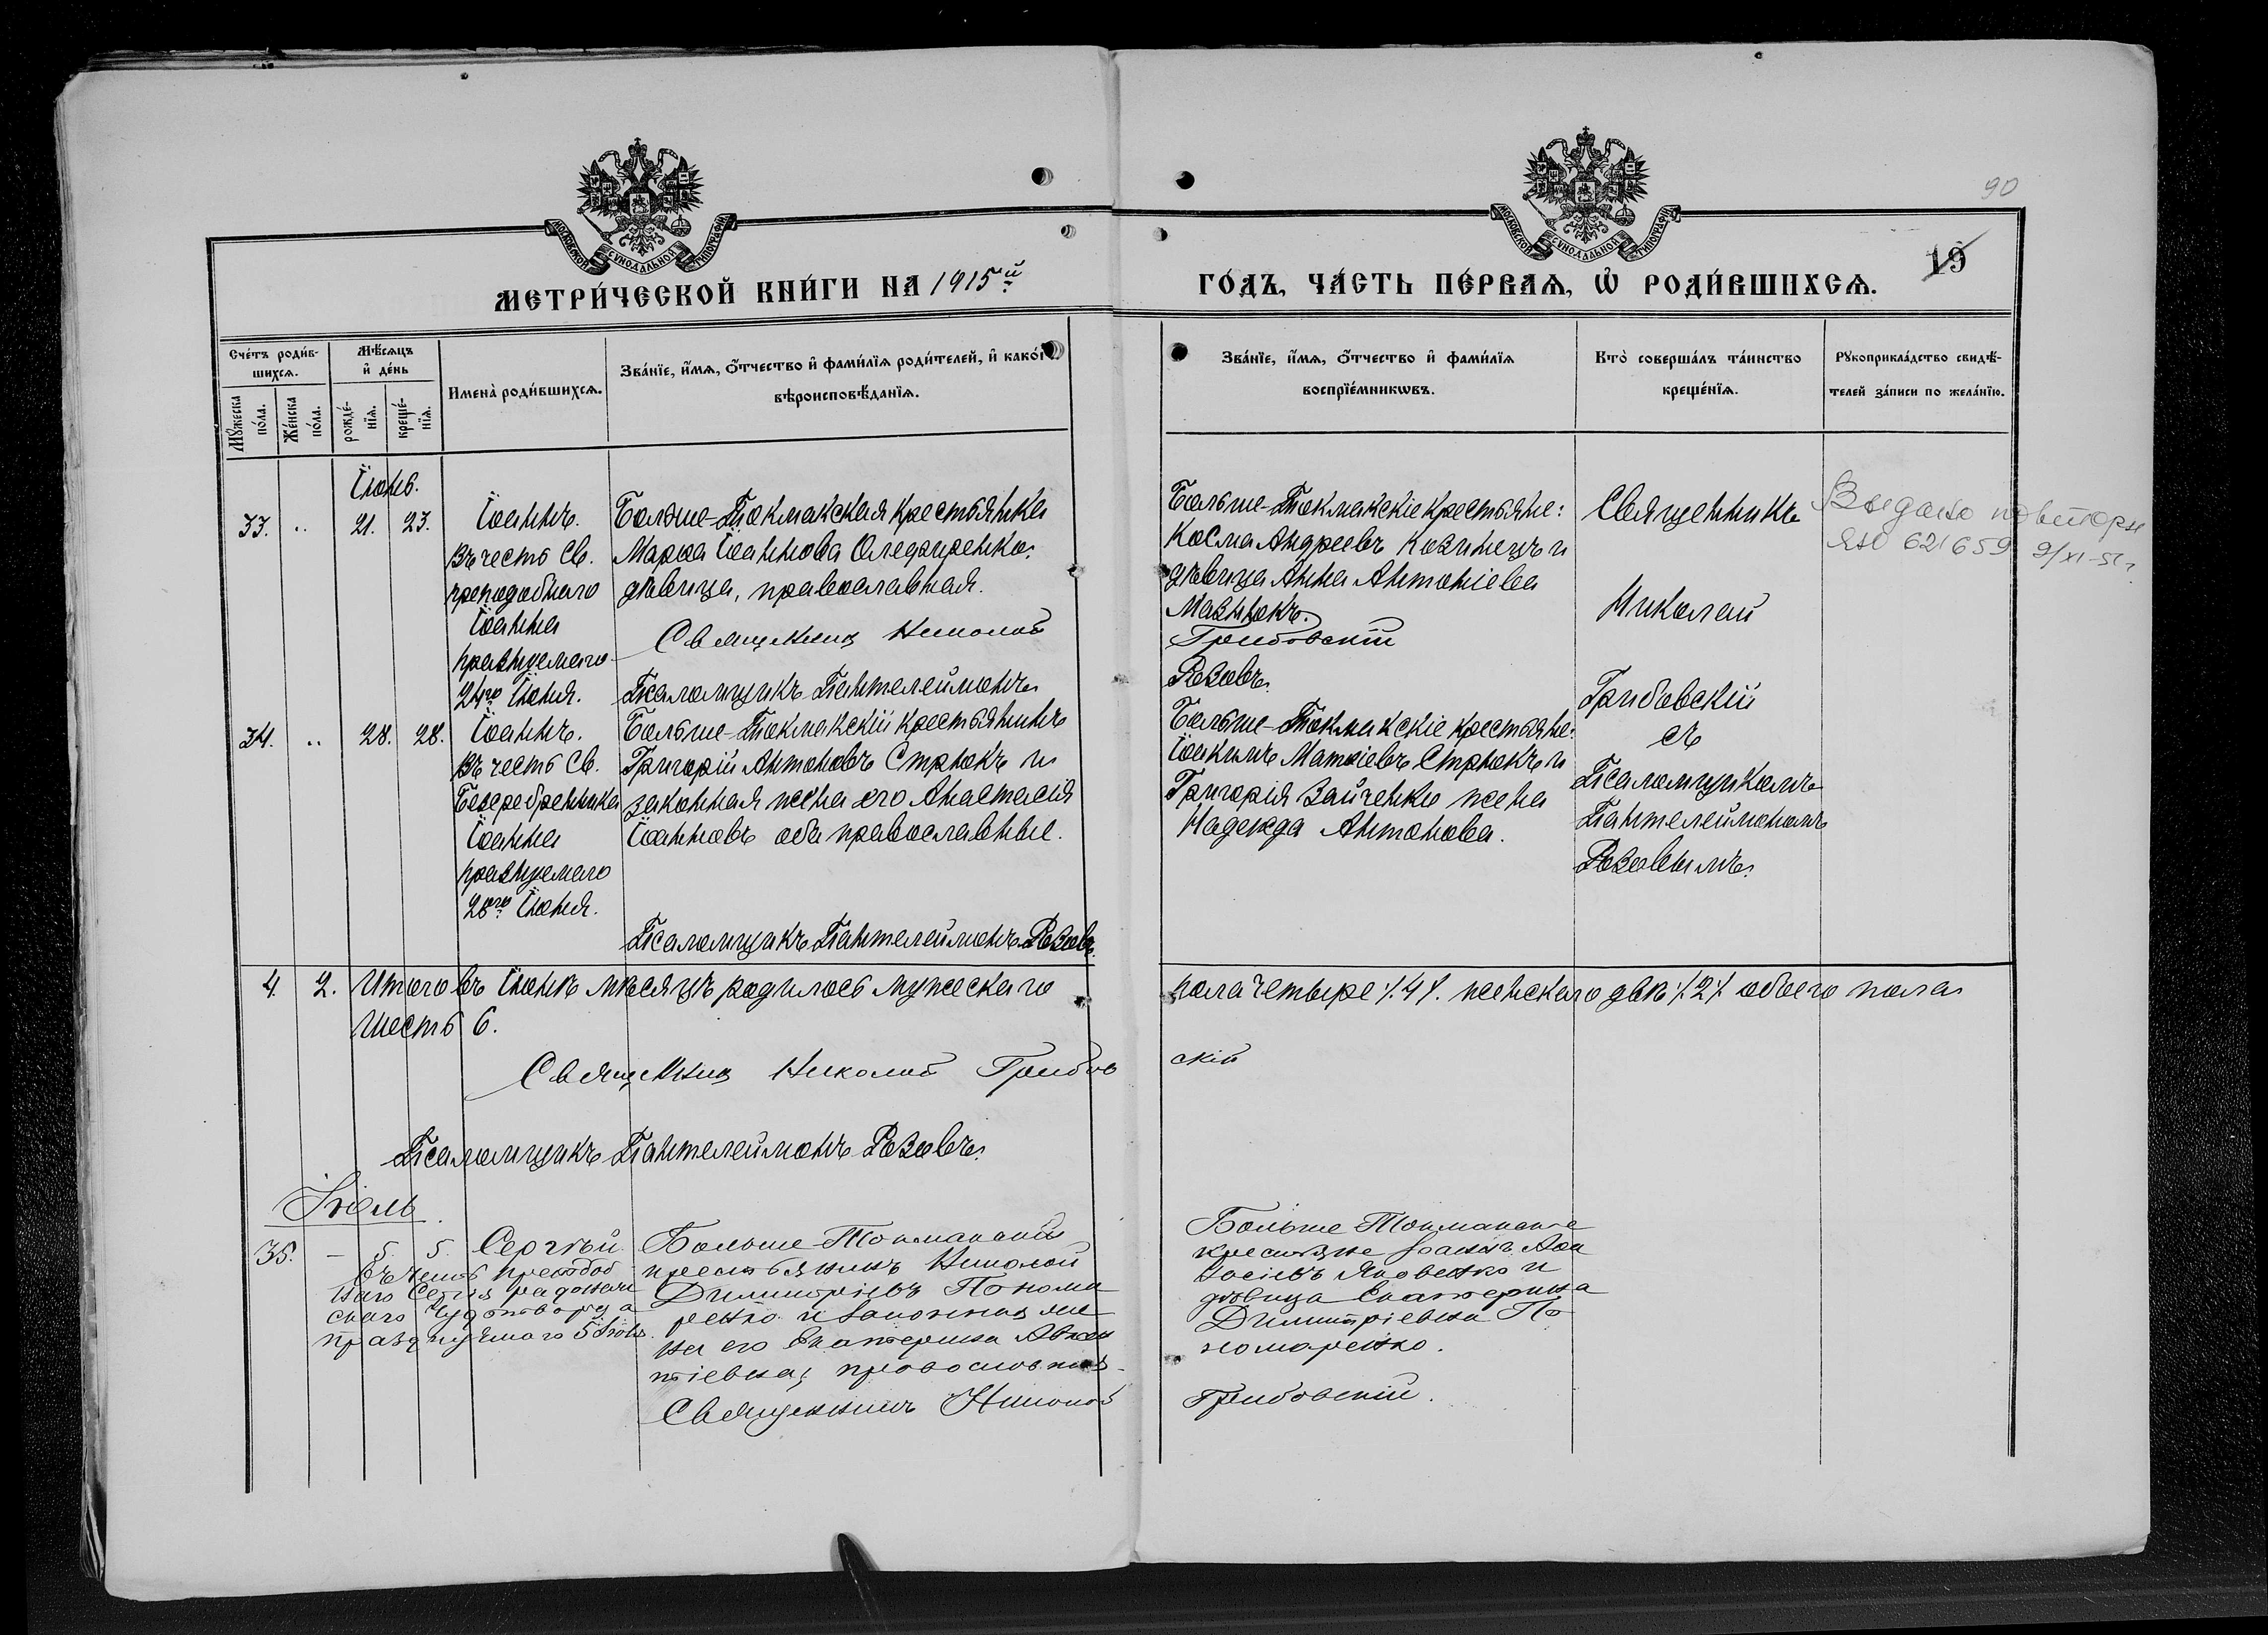 90
19
МОСКОВСКОЙ СУНОДАЛЬНОЙ ТИПОГРАФІИ
МОСКОВСКОЙ СУНОДАЛЬНОЙ ТИПОГРАФІИ
МЕТРИ́ЧЕСКОЙ КНИ́ГИ НА 1915й
ГО́ДЪ, ЧА́СТЬ ПЕ́РВАѦ, Ѽ РОДИ́ВШИХСѦ.
Сче́тъ роди́в-
шихсѧ.
Мꙋ́жеска
по́ла.
Же́нска
по́ла.
Мѣ́сѧцъ
и҆ де́нь
рожде́-
нїѧ.
креще́-
нїѧ.
Имена̀ роди́вшихсѧ.
Зва́нїе, и҆́мѧ, ѻ҆́тчество и҆ фами́лїѧ роди́телей, и҆ како́гѡ
вѣроисповѣ́данїѧ.
Зва́нїе, и҆́мѧ, ѻ҆́тчество и҆ фами́лїѧ
воспрїе́мникѡвъ.
Кто̀ соверша́лъ та́инство
креще́нїѧ.
Рꙋкоприкла́дство свидѣ́-
телей за́писи по жела́нїю.
Іюнь.
33. .. 21. 23.
Іоаннъ.
Въ честь Св.
преподобнаго
Іоанна
празднуемаго
24го Іюня.
Больше-Токмакская крестьянка
Марѳа Іоаннова Олефиренко,
дѣвица, православная.
Священник Николай
Псаломщикъ Пантелеймонъ
Больше-Токмакскіе крестьяне:
Косма Андреевъ Козинецъ и
дѣвица Анна Антоніева
Мазнюкъ.
Грибовскій
Розовъ.
Священникъ
Николай
Грибовскій
съ
Псаломщикомъ
Пантелеймономъ
Розовымъ.
Выдано повторн
ЯЮ 621659 9/XI-51г.
34. .. 28. 28.
Іоаннъ.
Въ честь Св.
Безсребренника
Іоанна
празднуемаго
28го Іюня.
Больше-Токмакскій крестьянинъ
Григорій Антоновъ Стрюкъ и
законная жена его Анастасія
Іоаннова оба православные.
Псаломщикъ Пантелеймонъ Розовъ.
Больше-Токмакскіе крестьяне:
Іоакимъ Матѳіевъ Стрюкъ и
Григорія Зайченко жена
Надежда Антонова.
4. 2. Итого въ Іюнѣ мѣсяцѣ родилось мужескаго
пола четыре /. 4 /. женскаго двѣ /. 2 /. обоего пола
шесть 6.
Священник Николай Грибов
скій
Псаломщикъ Пантелеймонъ Розовъ.
Іюль
35. – 5. 5. Сергѣй
въ честь преподоб
наго Сергія радонеж
скаго Чудотворца
празднуемаго 5 Іюля.
Больше-Токмакскій
крестьянинъ Николай
Димитріевъ Понома
ренко и законная же
на его Екатерина Авксен
тіевна, православные
Священникъ Николай
Больше Токмакскіе
крестьяне Іоаннъ
Яковенко и
дѣвица Екатерина
Димитріевна По
номаренко.
Грибовскій.